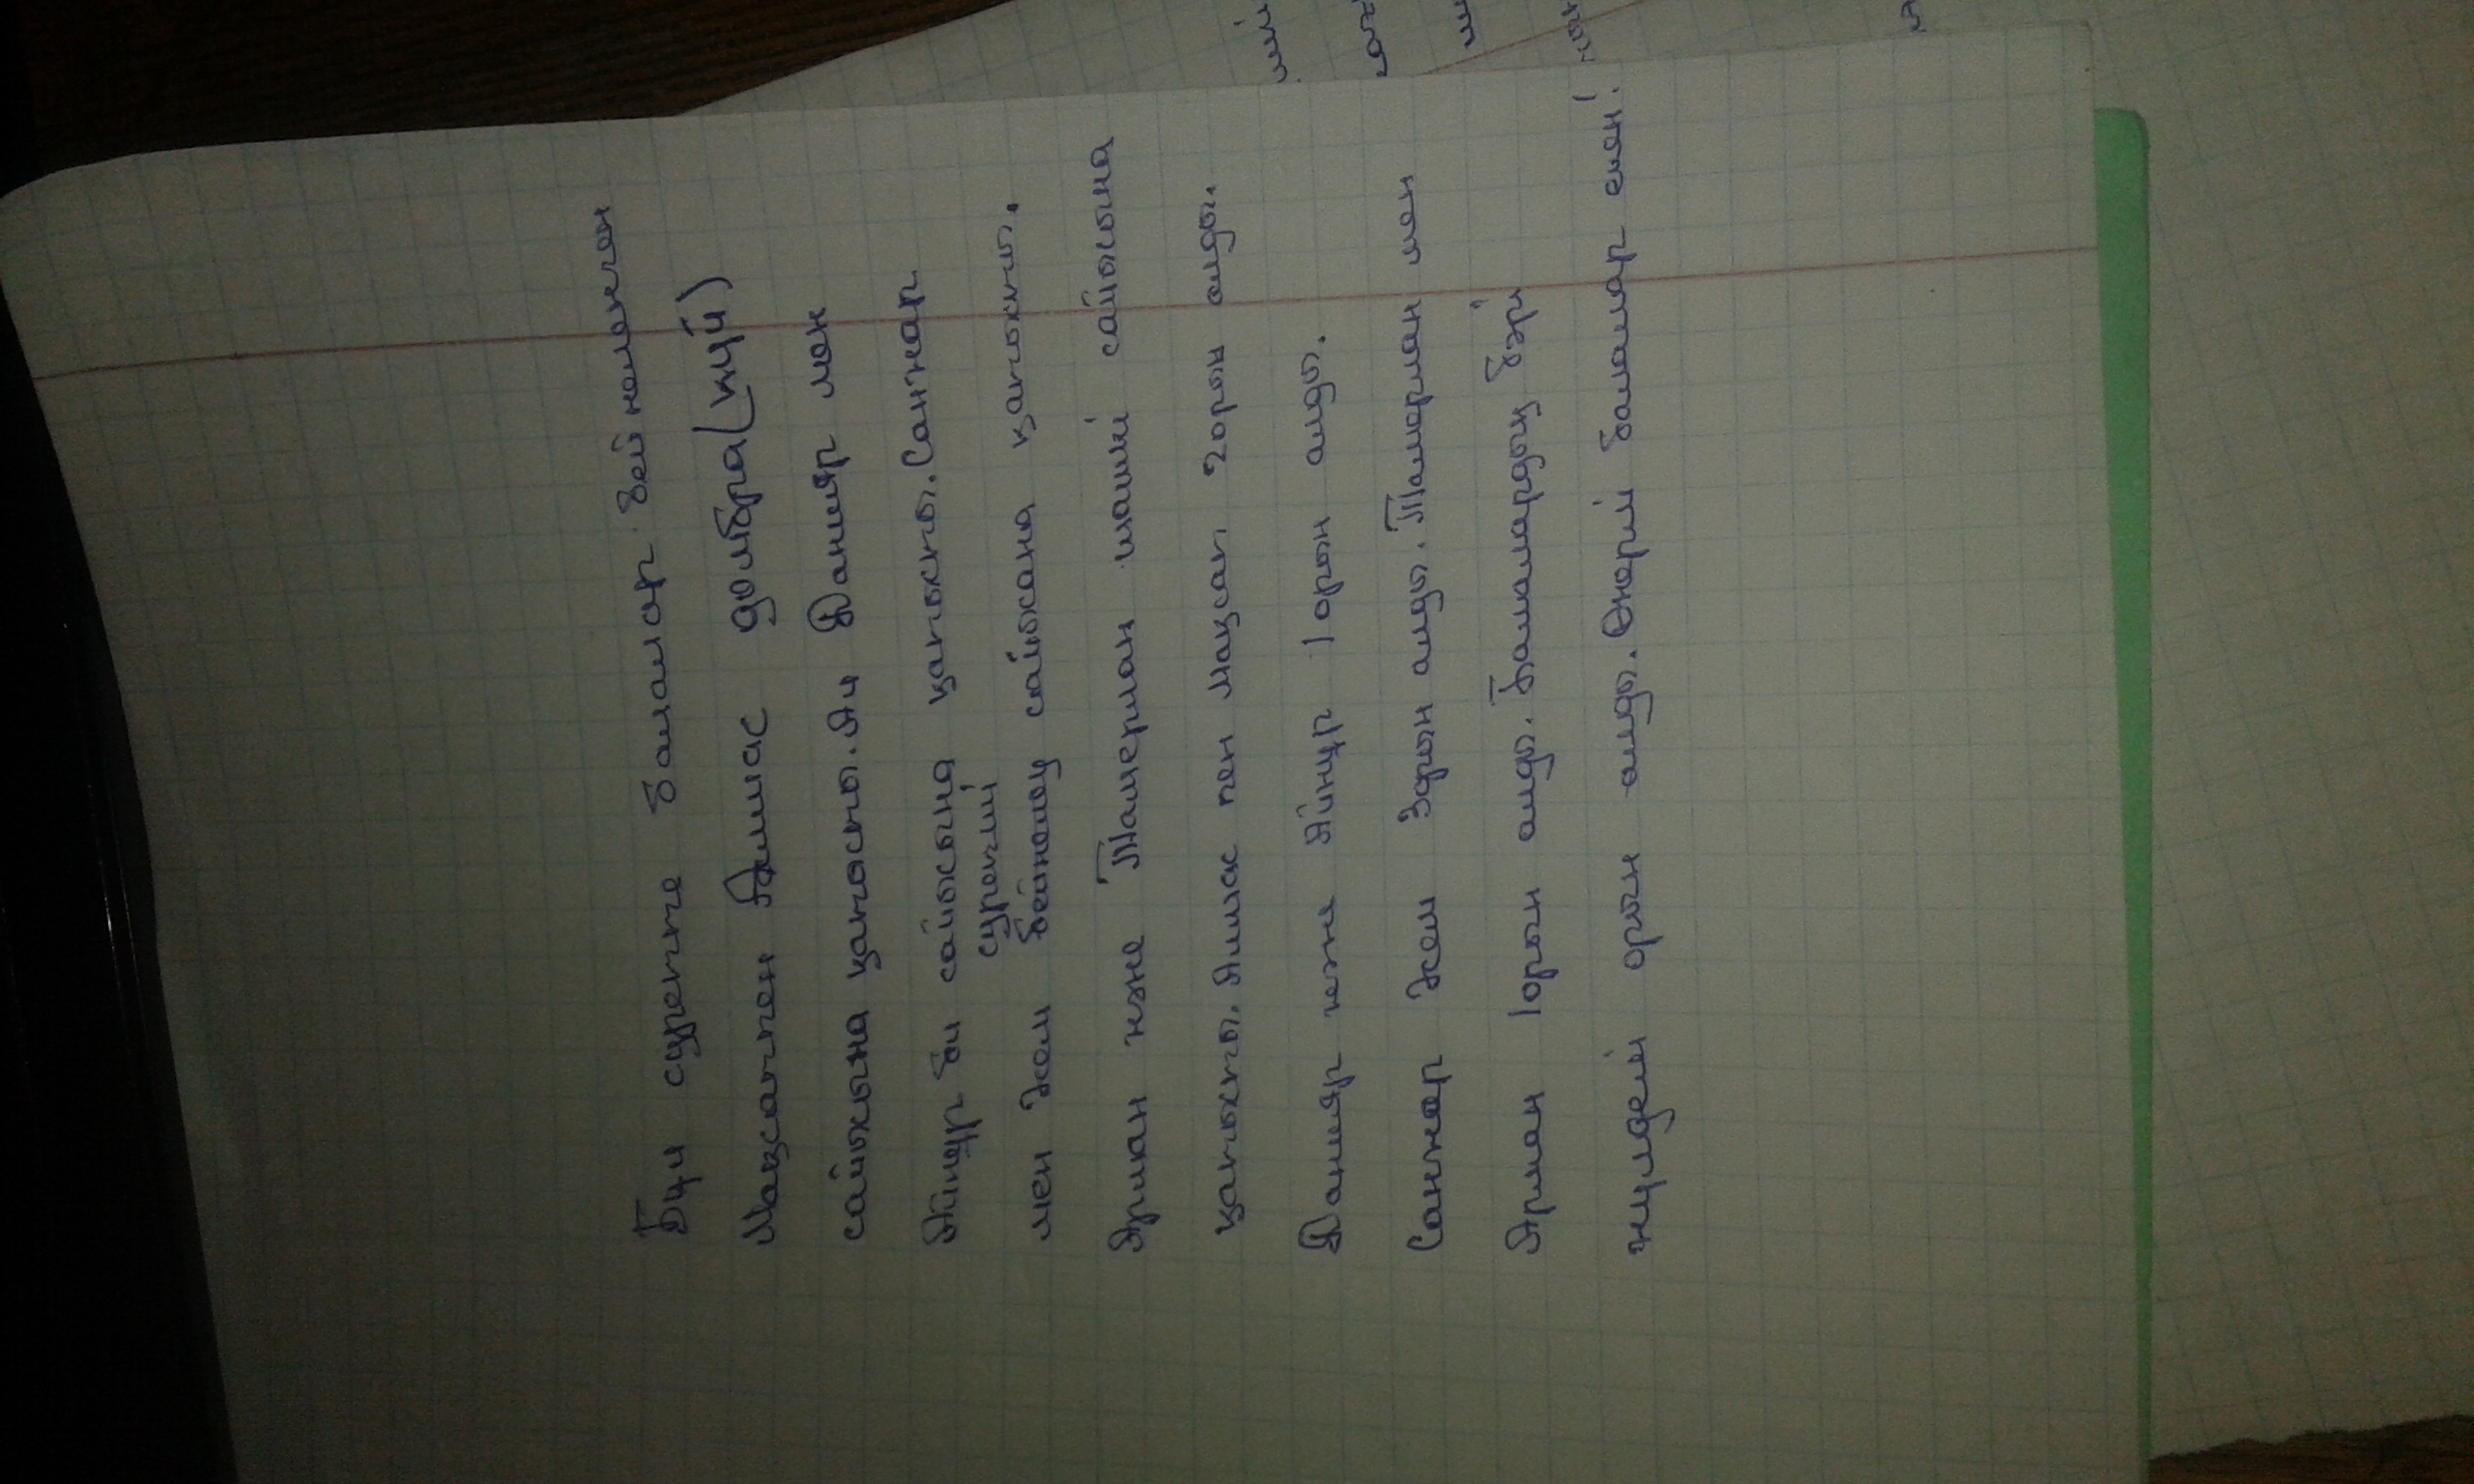 Бұл суретте балалар бейнеленген
Мақсатпен Алмас домбра(күй)
сайысына қатысты. Ал Данияр мен
Айнұр би сайысына қатысты. Санжар
мен Жан бейнелеу суретші сайысына қатысты.
Арман және Тамерлан шаши сайысына
қатысты. Алмас пен Мақсат 2орын алды.
Данияр және Айнұр 1 орын алды.
Санжар Жан 3орын алды. Тамерлан мен
Арман 1орын алды. Балалардың бәрі
жүлделі орын алды. Өнерлі балалар екен!